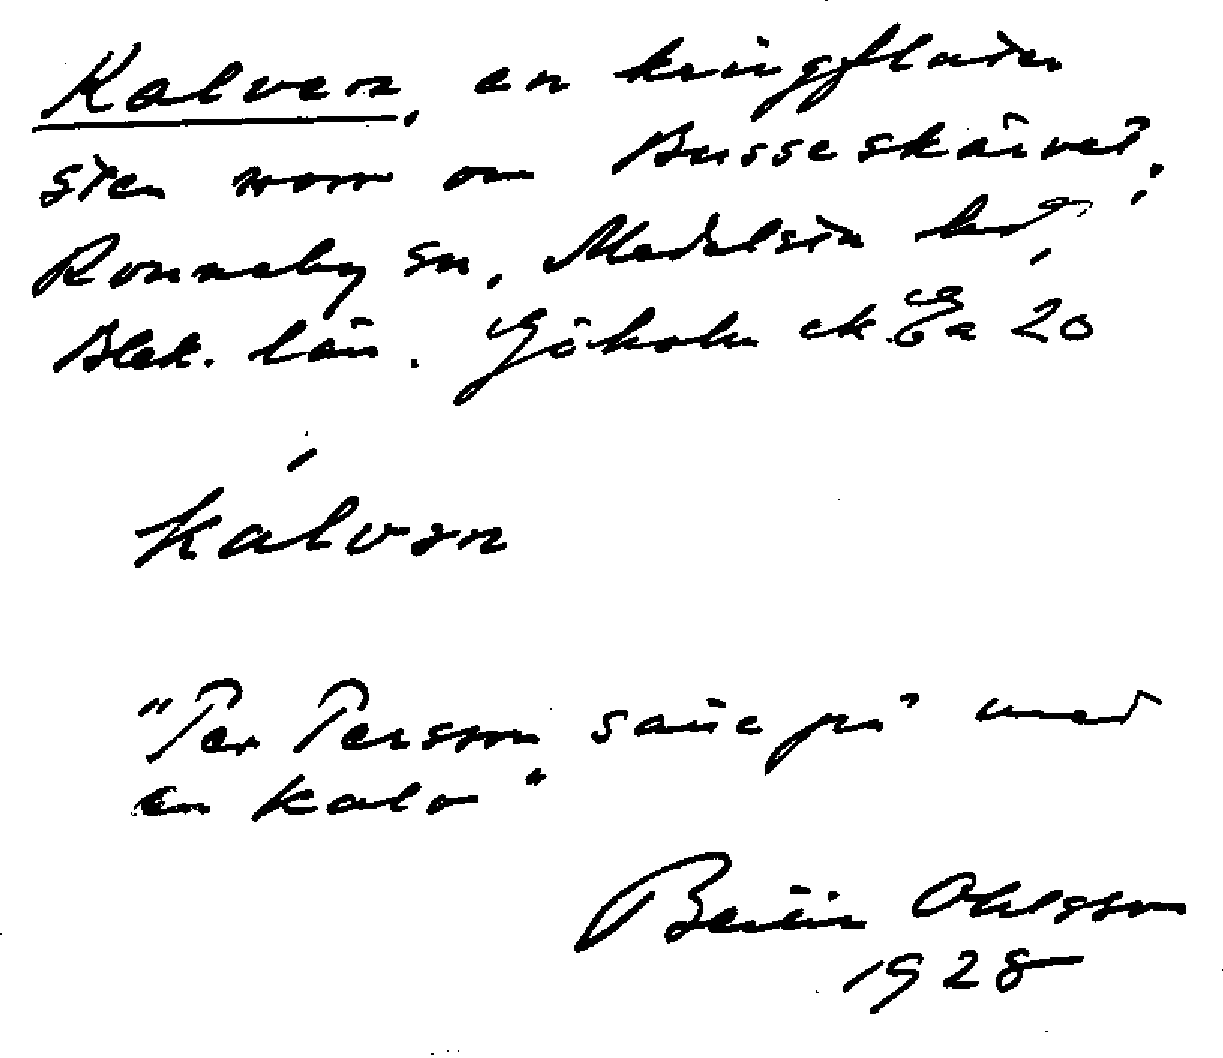 Kalven, en kringfluten
sten norr om Busseskärvet,
Ronneby sn, Medelsta hd,
Blek. län. Sjökort ek Ea 20
kalven
"Per Persson satte på med
en kalv"
Bertil Ohlsson
1928